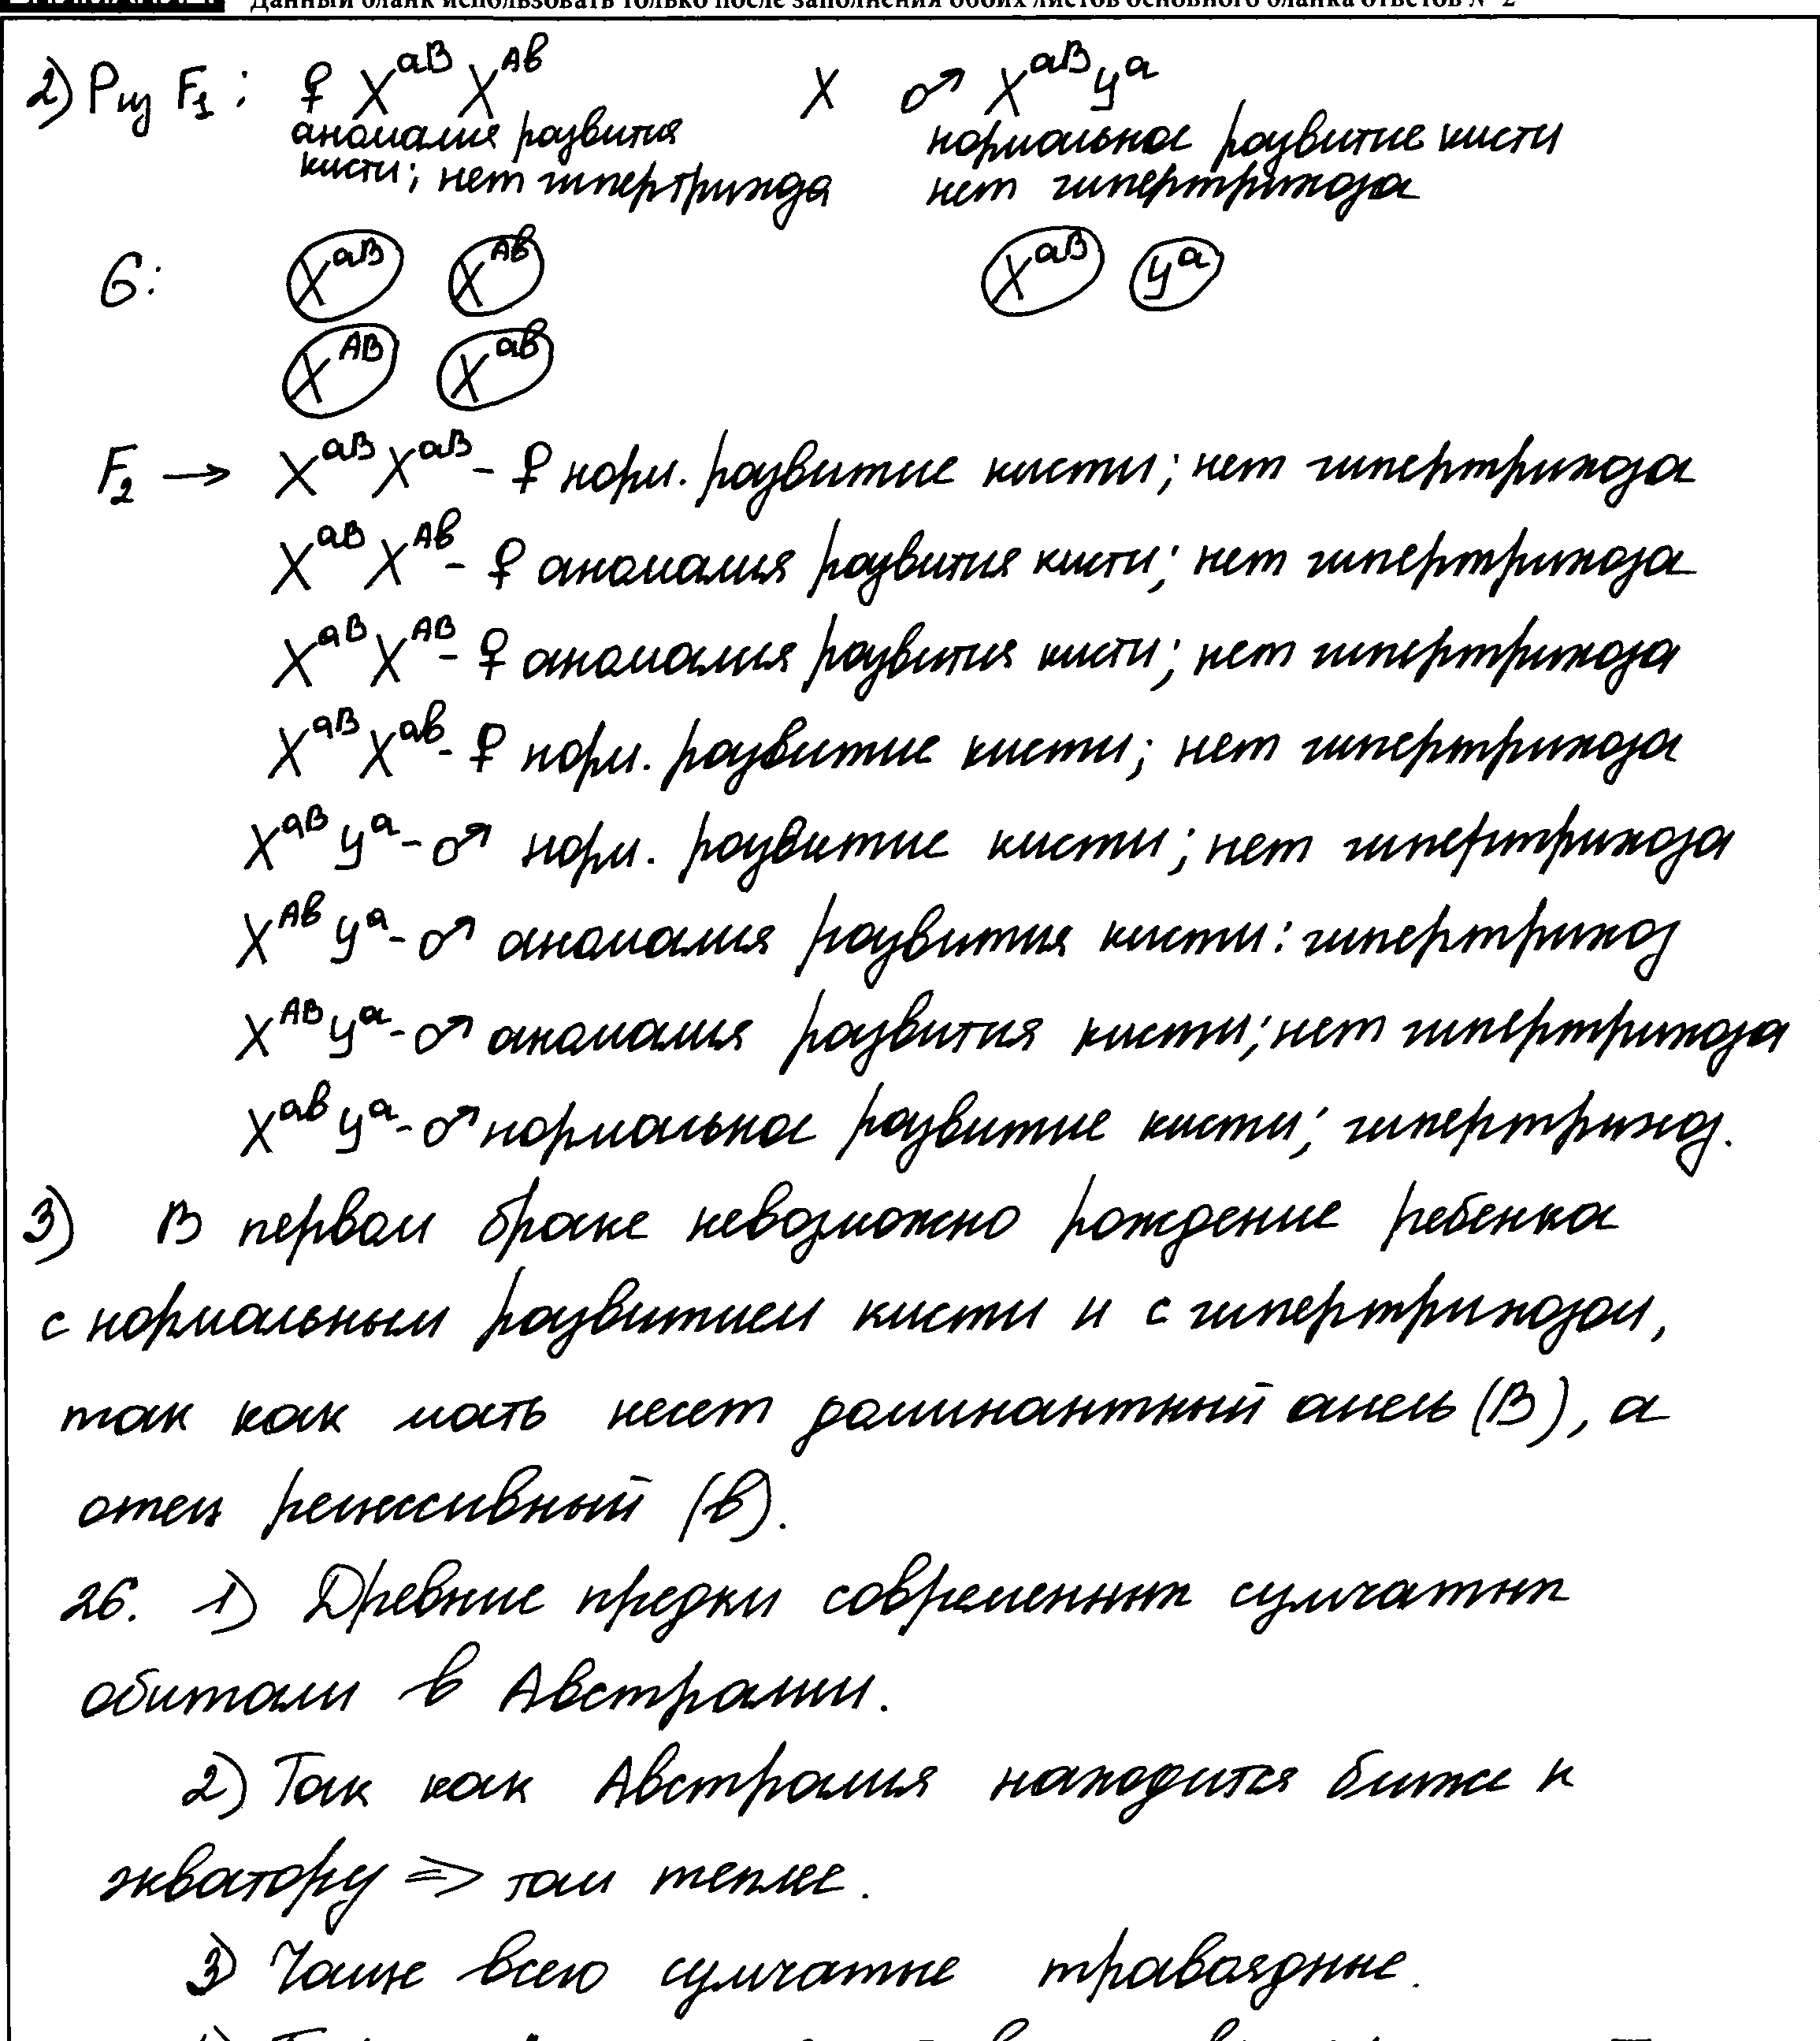 Данный бланк использовать только после заполнения обоих листов основного бланка ответов № 2
2) P из F₁ : ♀ X^aB X^Ab X ♂ X^aB y^a
аномалия развития нормальное развитие кисти
кисти; нет гипертрихоза нет гипертрихоза
G: X^aB X^Ab X^aB y^a
X^AB X^ab
F₂ → X^aB X^aB - ♀ норм. развитие кисти; нет гипертрихоза
X^aB X^Ab - ♀ аномалия развития кисти; нет гипертрихоза
X^aB X^AB - ♀ аномалия развития кисти; нет гипертрихоза
X^aB X^ab - ♀ норм. развитие кисти; нет гипертрихоза
X^aB y^a - ♂ норм. развитие кисти; нет гипертрихоза
X^Ab y^a - ♂ аномалия развития кисти: гипертрихоз
X^AB y^a - ♂ аномалия развития кисти; нет гипертрихоза
X^ab y^a - ♂ нормальное развитие кисти; гипертрихоз.
3) В первом браке невозможно рождение ребенка
с нормальным развитием кисти и с гипертрихозом,
так как мать несет доминантный алель (В), а
отец рецессивный (в).
26. 1) Древние предки современных сумчатых
обитали в Австралии.
2) Так как Австралия находится ближе к
экватору => там теплее.
3) Чаще всего сумчатые травоядные.